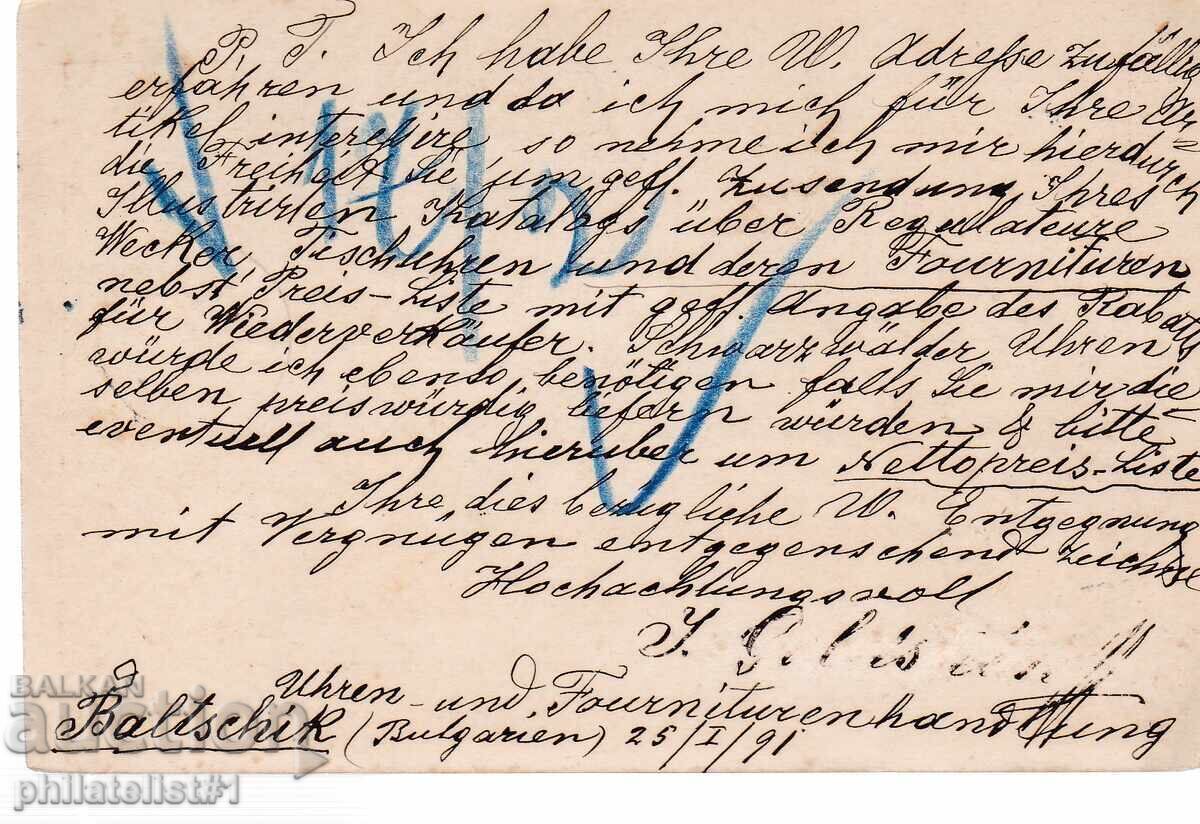 P. T. Ich habe Ihre W. Adresse zufällig
erfahren und da ich mich für Ihre Ar=
tikel interesire so nehme ich mir hierdurch
die Freiheit Sie um gefl. Zusendung Ihres
Illustrirten Katalogs über Regulateure
Wecker Tischuhren und deren Fournituren
nebst Preis-Liste mit gefl. Angabe des Rabatts
für Wiederverkäufer. Schwarzwälder Uhren
würde ich ebenso benötigen falls Sie mir die=
selben preiswürdig liefern würden & bitte
eventuell auch hierüber um Nettopreis-Liste
Ihre dies bezugliche W. Entgegnung
mit Vergnügen entgegensehend zeichne
Hochachtungsvoll
J.
Uhren- und Fourniturenhandlung
Baltschik (Bulgarien) 25/I/91
BALKAN
auction
philatelist#1